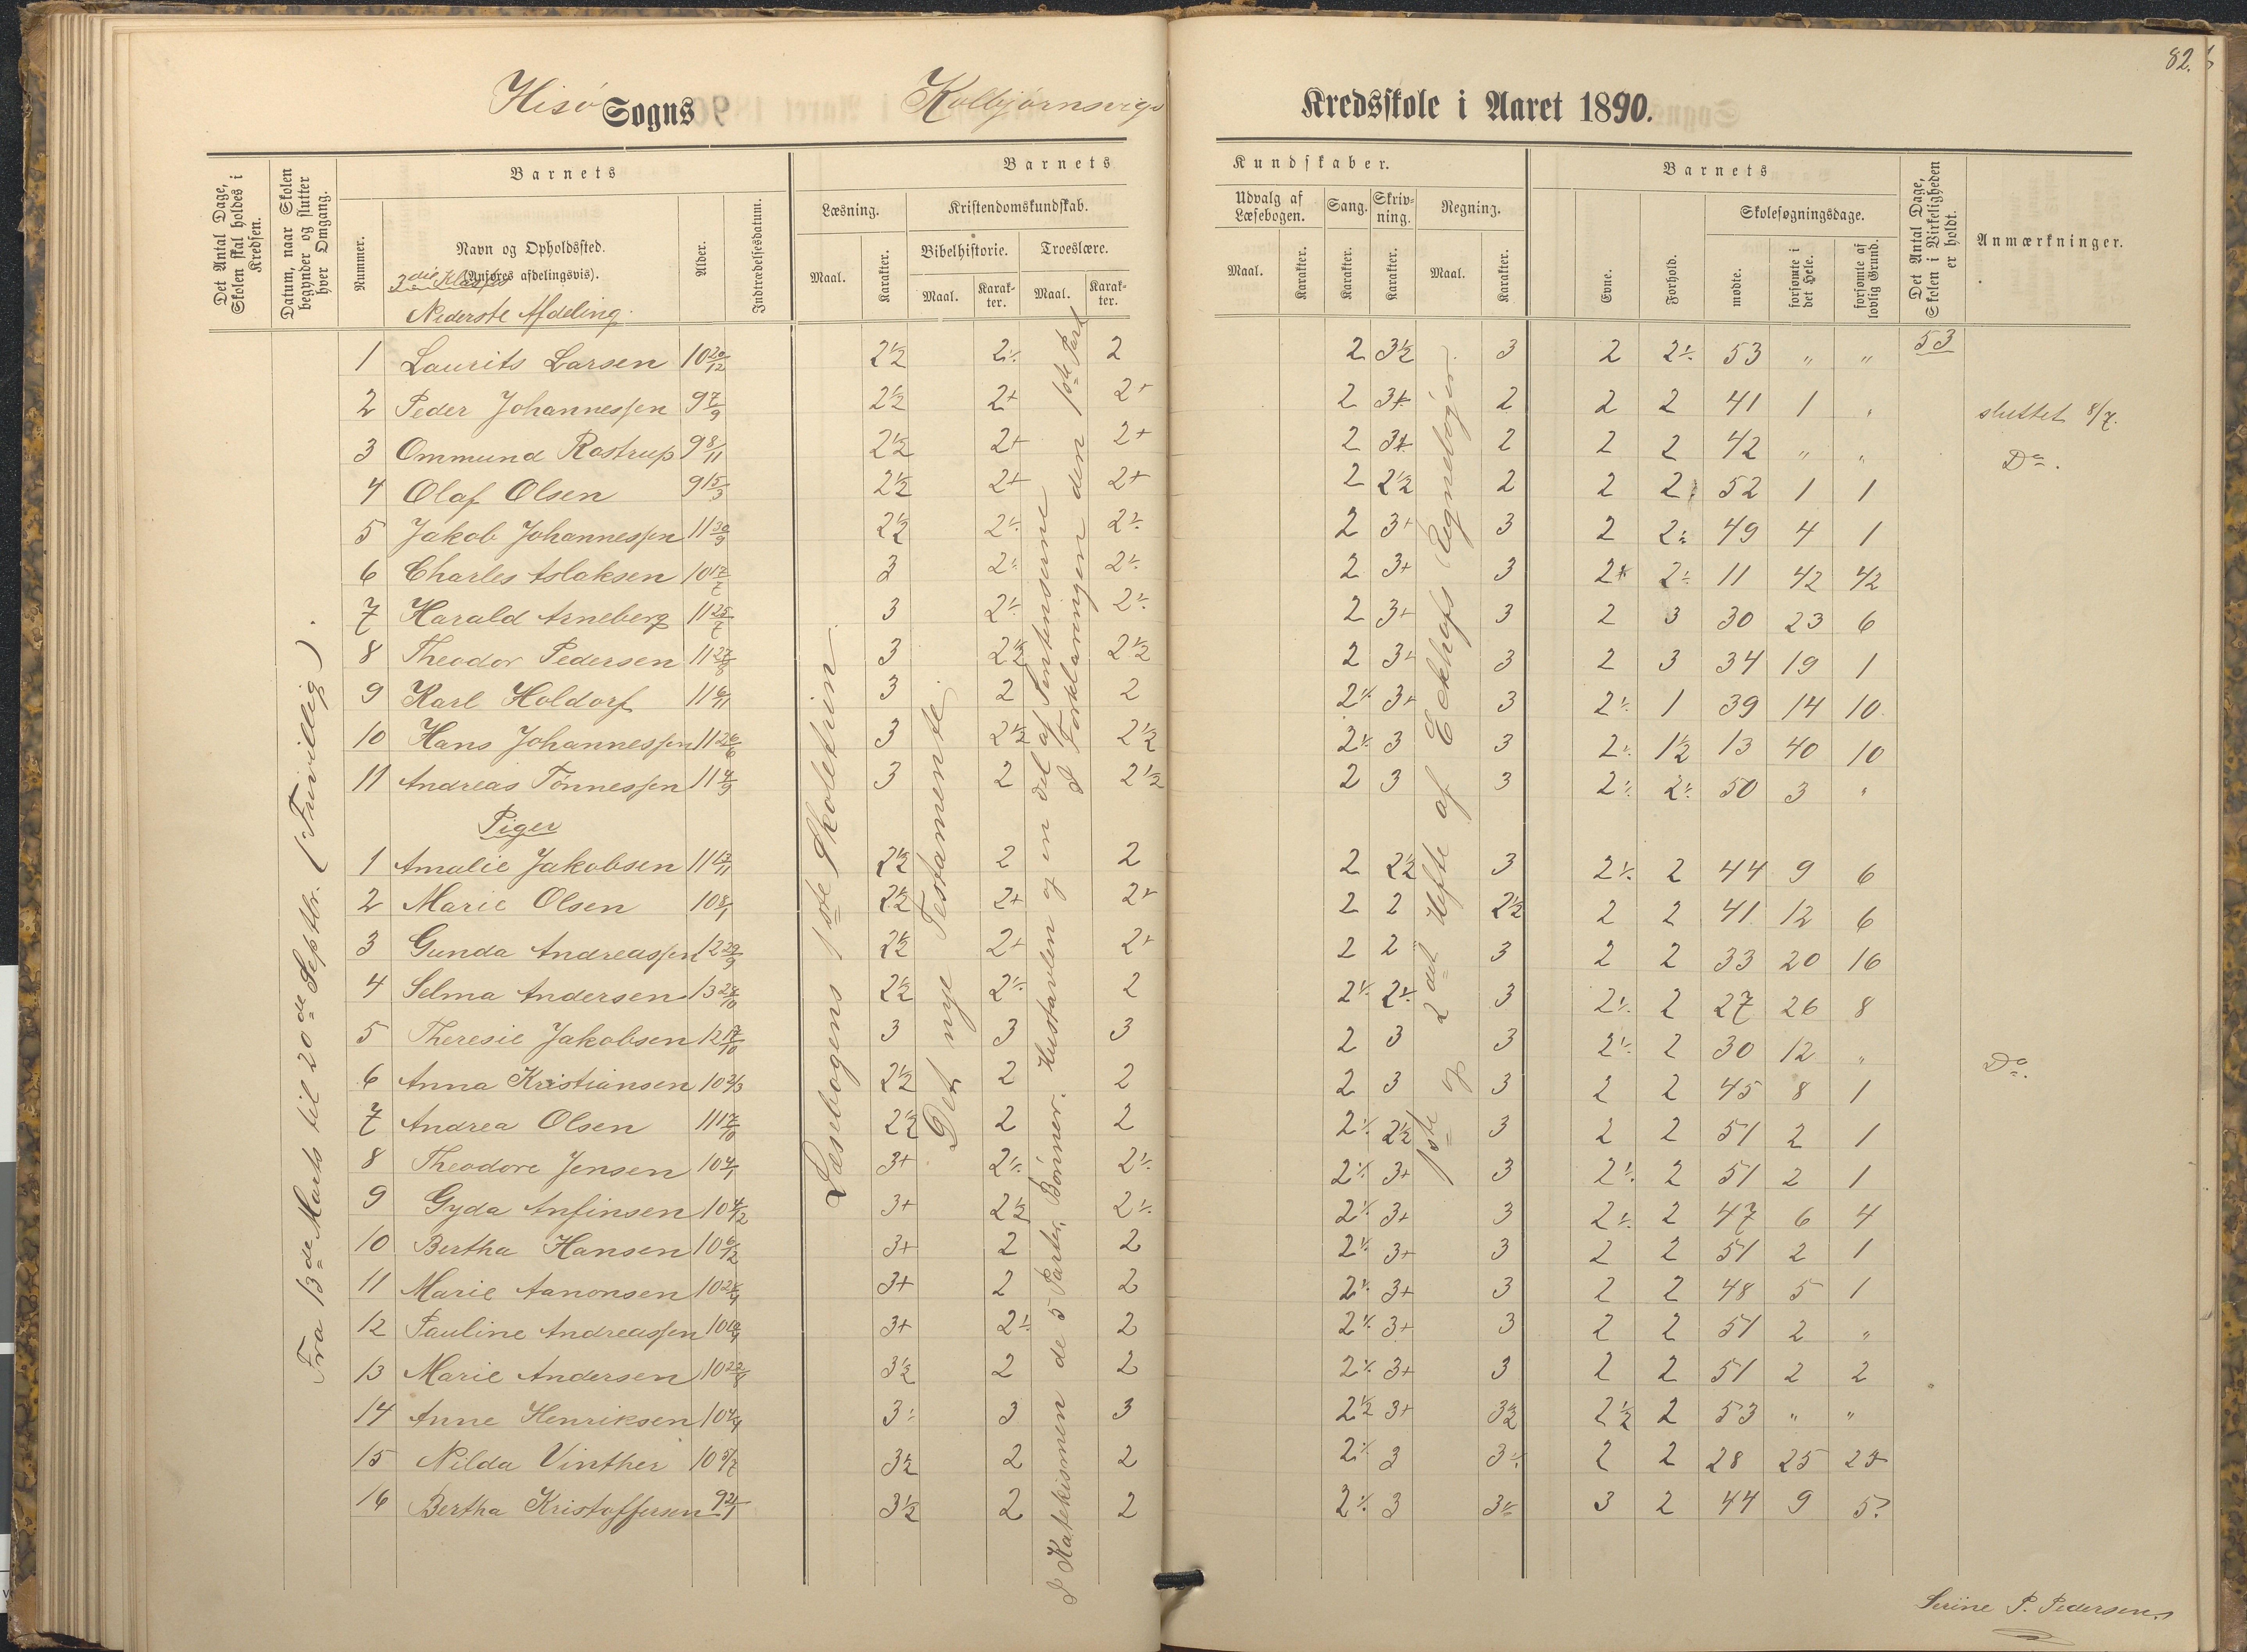 82.
Hisø Sogns Kolbjørnsvigs Kredsskole i Aaret 1890.
Det Antal Dage, Skolen skal holdes i Kredsen.
Datum, naar Skolen begynder og slutter hver Omgang.
Barnets
Nummer.
Navn og Opholdssted.
(Anføres afdelingsvis).
3die Klasses
Nederste Afdeling.
Alder.
Indtrædelsesdatum.
Barnets Kundskaber.
Læsning.
Maal.
Karakter.
Kristendomskundskab.
Bibelhistorie.
Maal.
Karakter.
Troeslære.
Maal.
Karakter.
Udvalg af Læsebogen.
Maal.
Karakter.
Sang.
Karakter.
Skrivning.
Karakter.
Regning.
Maal.
Karakter.
Barnets
Evne.
Forhold.
Skolesøgningsdage.
mødte.
forsømte i det Hele.
forsømte af lovlig Grund.
Det Antal Dage, Skolen i Virkeligheden er holdt.
Anmærkninger.
Fra 13de Marts til 20de Septbr. (Frivillig).
Læsebogens 1ste Skoletrin
Det nye Testamente.
I Katekismen de 5 Parter, Bønner. Hustavlen og en Del af Sentenserne
I Forklaringen den 1ste Part
1ste og 2det Hefte af Eckhofs Regnebøger.
1 Laurits Larsen 10 20/12 2½ 2÷ 2 2 3½ 3 2 2÷ 53 " " 53
2 Peder Johannessen 9 7/9 2½ 2+ 2+ 2 3+ 2 2 2 41 1 " sluttet 8/7.
3 Ommund Rostrup 9 8/11 2½ 2+ 2+ 2 3+ 2 2 2 42 " " Do.
4 Olaf Olsen 9 15/3 2½ 2+ 2+ 2 2½ 2 2 2 52 1 1
5 Jakob Johannessen 11 30/9 2½ 2÷ 2÷ 2 3+ 3 2 2÷ 49 4 1
6 Charles Aslaksen 10 17/7 3 2÷ 2÷ 2 3+ 3 2+ 2÷ 11 42 42
7 Harald Arneberg 11 25/7 3 2÷ 2÷ 2 3+ 3 2 3 30 23 6
8 Theodor Pedersen 11 27/8 3 2½ 2½ 2 3+ 3 2 3 34 19 1
9 Karl Holdorf 11 6/11 3 2 2 2÷ 3+ 3 2÷ 1 39 14 10
10 Hans Johannessen 11 26/6 3 2½ 2½ 2÷ 3 3 2÷ 1½ 13 40 10
11 Andreas Tønnessen 11 4/9 3 2 2½ 2 3 3 2÷ 2÷ 50 3 "
Piger
1 Amalie Jakobsen 11 13/11 2½ 2 2 2 2½ 3 2÷ 2 44 9 6
2 Marie Olsen 10 8/1 2½ 2+ 2+ 2 2 2½ 2 2 41 12 6
3 Gunda Andreassen 12 29/9 2½ 2+ 2+ 2 2 3 2 2 33 20 16
4 Selma Andersen 13 24/10 2½ 2÷ 2 2÷ 2÷ 3 2÷ 2 27 26 8
5 Theresie Jakobsen 12 17/10 3 3 3 2 3 3 2÷ 2 30 12 " Do.
6 Anna Kristiansen 10 3/3 2½ 2 2 2 3 3 2 2 45 8 1
7 Andrea Olsen 11 17/10 2½ 2 2 2÷ 2½ 3 2 2 51 2 1
8 Theodore Jensen 10 4/1 3+ 2÷ 2÷ 2÷ 3+ 3 2÷ 2 51 2 1
9 Gyda Anfinsen 10 4/12 3+ 2½ 2÷ 2÷ 3+ 3 2÷ 2 47 6 4
10 Bertha Hansen 10 6/12 3+ 2 2 2÷ 3+ 3 2 2 51 2 1
11 Marie Aanonsen 10 28/4 3+ 2 2 2÷ 3+ 3 2 2 48 5 1
12 Pauline Andreassen 10 10/4 3+ 2÷ 2 2÷ 3+ 3 2 2 51 2 "
13 Marie Andersen 10 22/8 3½ 2 2 2÷ 3+ 3 2 2 51 2 2
14 Anne Henriksen 10 4/4 3÷ 3 3 2½ 3+ 3½ 2½ 2 53 " "
15 Nilda Vinther 10 5/7 3½ 2 2 2÷ 3 3÷ 2 2 28 25 25
16 Bertha Kristoffersen 9 21/1 3½ 2 2 2÷ 3 3÷ 3 2 44 9 5?
Serine P. Pedersen.